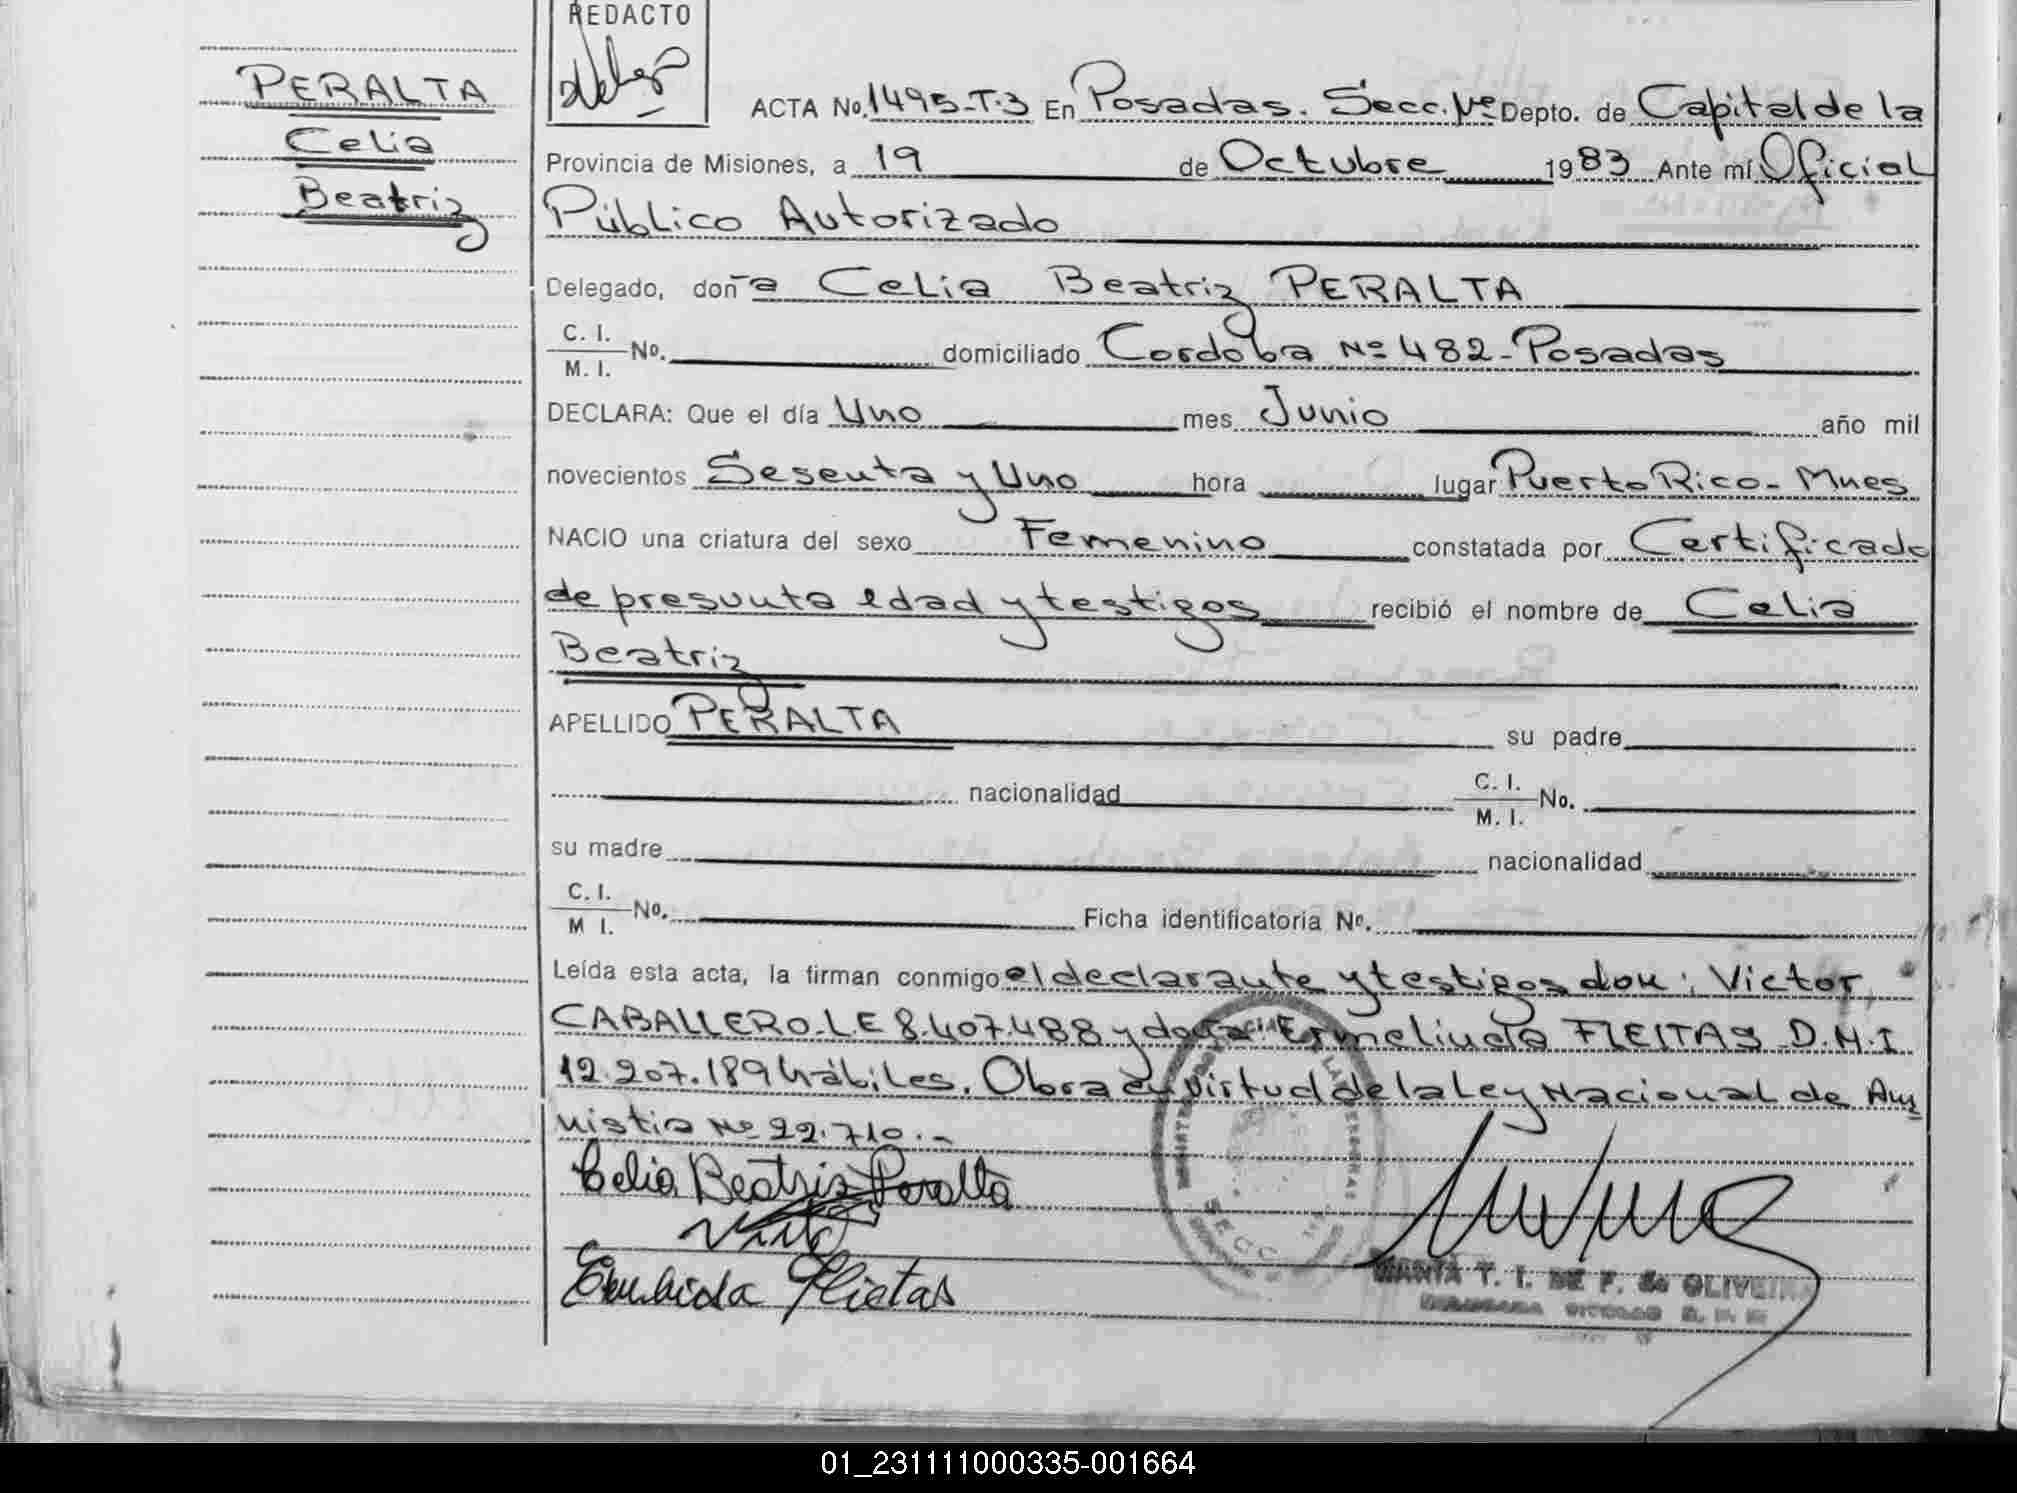 REDACTO
PERALTA
Celia
Beatriz
ACTA No. 1495-T.3 En Posadas. Secc. 1ra Depto. de Capital de la
Provincia de Misiones, a 19 de Octubre 1983 Ante mí Oficial
Público Autorizado
Delegado, doña Celia Beatriz PERALTA
C. I.
M. I. No. domiciliado Cordoba Nº 482-Posadas
DECLARA: Que el día Uno mes Junio año mil
novecientos Sesenta y Uno hora lugar Puerto Rico - Mnes
NACIO una criatura del sexo Femenino constatada por Certificado
de presunta edad y testigos recibió el nombre de Celia
Beatriz
APELLIDO PERALTA su padre
nacionalidad C. I.
M. I. No.
su madre nacionalidad
C. I.
M I. No. Ficha identificatoria No.
Leída esta acta, la firman conmigo el declarante y testigos don: Victor
CABALLERO. L E 8.407.488 y doña Ermelinda FLEITAS D.N.I
12.207.189 hábiles. Obra en virtud de la Ley Nacional de Am
nistia Nº 22.710.-
Celia Beatriz Peralta
SECC
MARTA T. I. DE F. de OLIVEIRA
01_231111000335-001664